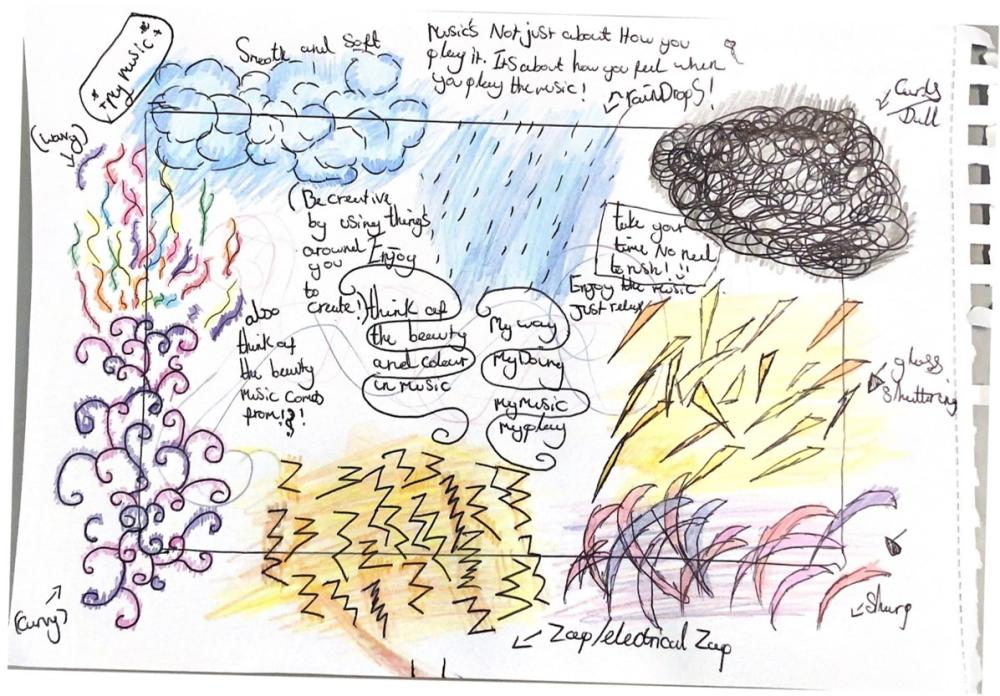 *My music*
Smooth and Soft
Music's Not just about How you
play it. It's about how you feel when
you play the music!
rainDrops!
Curls
Dull
(wavy)
(Be creative
by using things
around
you
to
create!)
Enjoy
think of
the beauty
and colour
in music
also
think of
the beauty
music comes
from!?!
My way
My Doing
my music
my play
take your
time. No need
to rush! !!
Enjoy the music
just relax
glass
shuttering
(curvy)
Zap/electrical Zap
Slurp